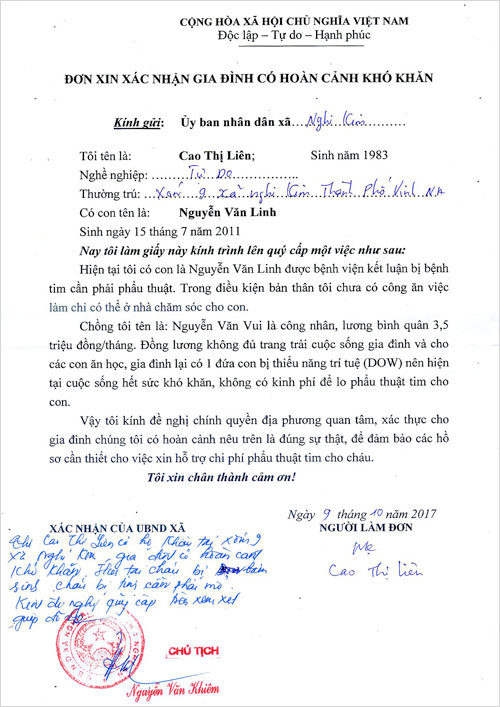 CỘNG HÒA XÃ HỘI CHỦ NGHĨA VIỆT NAM
Độc lập – Tự do – Hạnh phúc
ĐƠN XIN XÁC NHẬN GIA ĐÌNH CÓ HOÀN CẢNH KHÓ KHĂN
Kính gửi: Ủy ban nhân dân xã....Nghi Kim..........
Tôi tên là: Cao Thị Liên; Sinh năm 1983
Nghề nghiệp: ..........Tự Do..................
Thường trú: ...Xóm 9 xã nghi Kim Thành Phố Vinh NA
Có con tên là: Nguyễn Văn Linh
Sinh ngày 15 tháng 7 năm 2011
Nay tôi làm giấy này kính trình lên quý cấp một việc như sau:
Hiện tại tôi có con là Nguyễn Văn Linh được bệnh viện kết luận bị bệnh
tim cần phải phẩu thuật. Trong điều kiện bản thân tôi chưa có công ăn việc
làm chỉ có thể ở nhà chăm sóc cho con.
Chồng tôi tên là: Nguyễn Văn Vui là công nhân, lương bình quân 3,5
triệu đồng/tháng. Đồng lương không đủ trang trải cuộc sống gia đình và cho
các con ăn học, gia đình lại có 1 đứa con bị thiểu năng trí tuệ (DOW) nên hiện
tại cuộc sống hết sức khó khăn, không có kinh phí để lo phẩu thuật tim cho
con.
Vậy tôi kính đề nghị chính quyền địa phương quan tâm, xác thực cho
gia đình chúng tôi có hoàn cảnh nêu trên là đúng sự thật, để đảm bảo các hồ
sơ cần thiết cho việc xin hỗ trợ chi phí phẩu thuật tim cho cháu.
Tôi xin chân thành cảm ơn!
Ngày 9 tháng 10 năm 2017
XÁC NHẬN CỦA UBND XÃ
Chị Cao Thị Liên có hộ khẩu tại xóm 9
xã Nghi Kim, gia đình có hoàn cảnh
khó khăn. Hiện tại cháu bị bẩm
sinh cháu bị tim cần phải mổ.
Kính đề nghị quý cấp xem xét
giúp đỡ
CHỦ TỊCH
Nguyễn Văn Khiêm
NGƯỜI LÀM ĐƠN
Mẹ
Cao Thị Liên